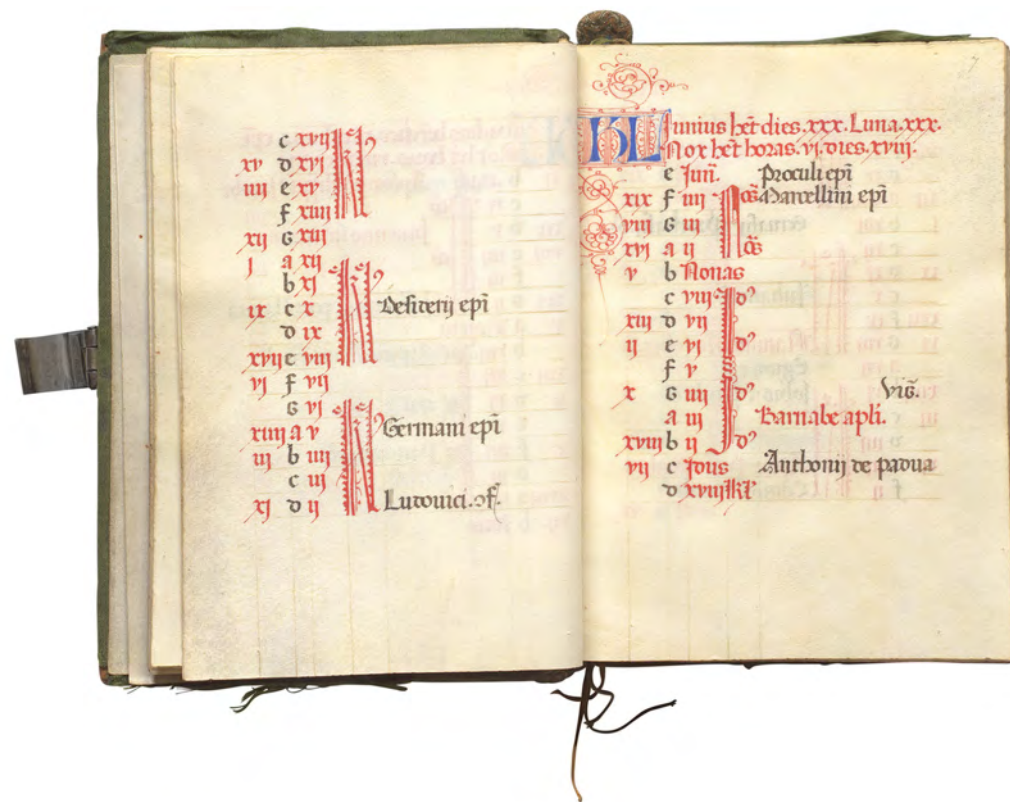 c xvij
xv d xvj
iiij e xv
f xiiij
xij G xiij
j a xij
b xj
ix c x Desiterij epi
d ix
xvij e viij
vj f vij
G vj
xiiij a v Germani epi
iij b iiij
c iij
xj d ij Ludovici. ꝯf.
KL Junius hēt dies. xxx. Luna. xxx.
Nox hēt horas. vj. dies. xviij.
e Junī. Proculi epī
xix f iiij Nōs Marcellini epī
viij G iij
xvj a ij Nōs
v b Nonas
c viij Jdꝰ
xiij d vij
ij e vj Jdꝰ
f v
x G iiij Jdꝰ Vig̃.
a iij Barnabe apli.
xviij b ij Jdꝰ
vij c Jdus Anthonij de padua
d xviij kl